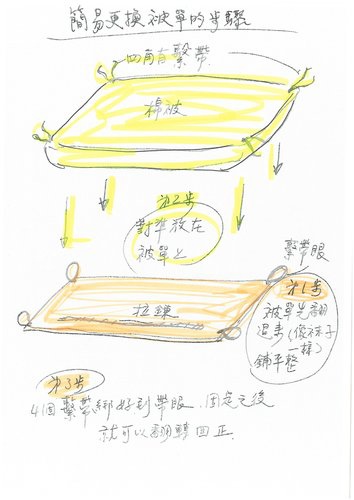 簡易更換被單的步驟
四角有繫帶
棉被
第2步
對準放在
被單上
繫帶眼
第1步
被單先翻
過來(像袜子
一樣)
鋪平整
拉鍊
第3步
4個繫帶綁好到帶眼．固定之後
就可以翻轉回正